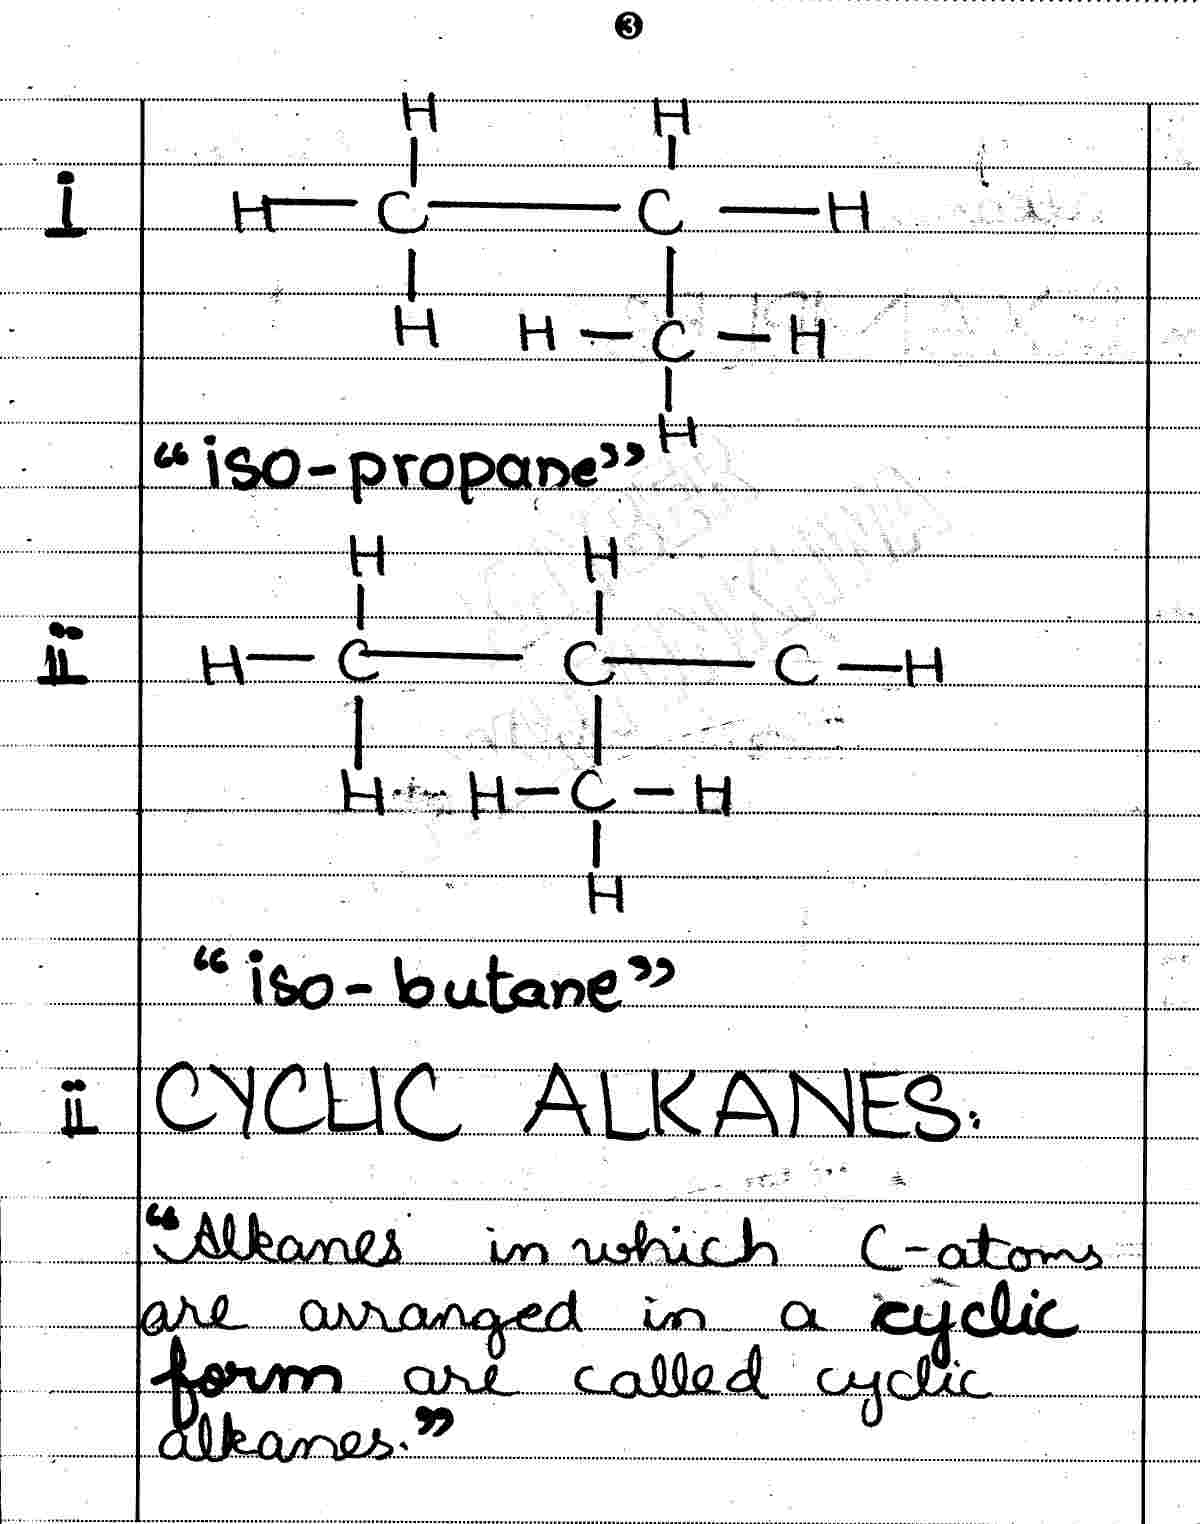 3
H H
i H—C—C—H
H H—C—H
H
“iso-propane”
H H
ii H—C—C—C—H
H H—C—H
H
“iso-butane”
ii CYCLIC ALKANES:
“Alkanes in which C-atoms
are arranged in a cyclic
form are called cyclic
alkanes.”